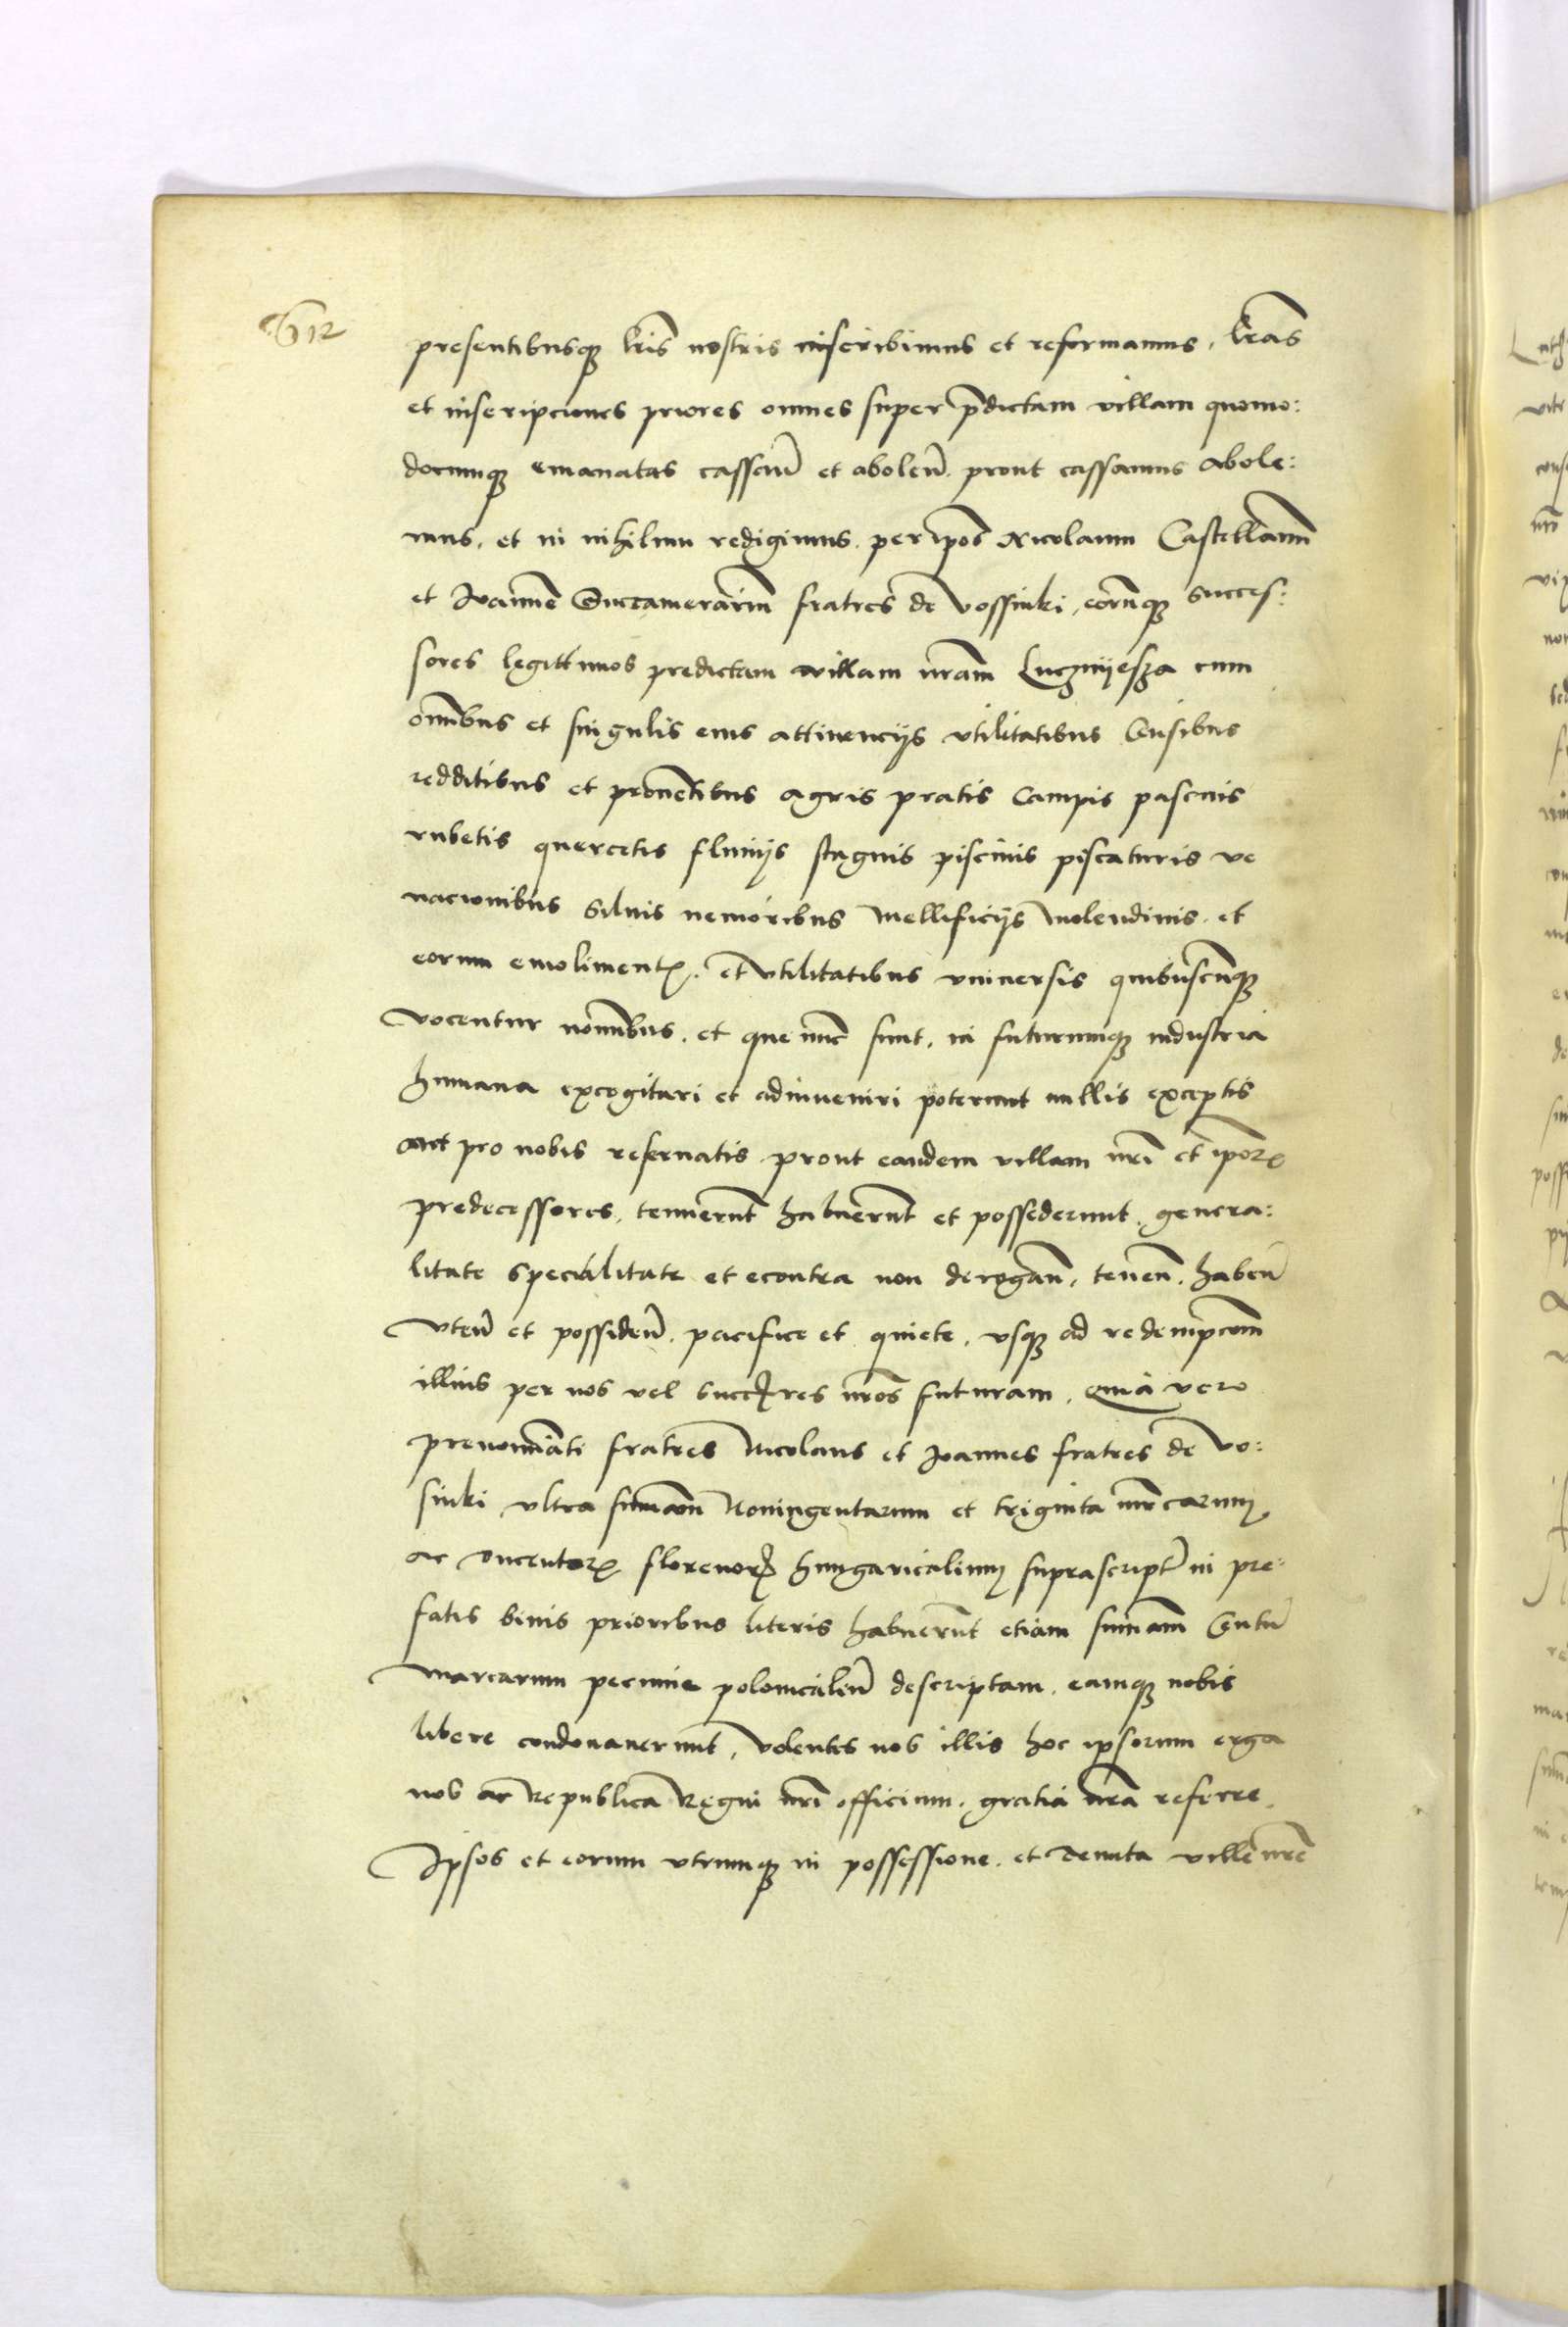 612
presentibusq lris nostris inscribimus et reformamus, lras
et inscripciones priores omnes super pdictam villam quomo:
documq emanatas cassan et abolen. prout cassamus abole:
mus, et in nihilum redigimus. per ipos Nicolaum Castellanu
et Joanne Succamerariu fratres de Vossinki, eorumq succes:
sores legittimos predictam villam nram Luczmijesza cum
omnibus et singulis eius attinencijs vtilitatibus Censibus
redditibus et prouentibus agris pratis Campis pascuis
rubetis quercetis fluuijs stagnis piscinis piscaturis ve
nacionibus Siluis nemoribus Mellificijs Molendinis. et
eorum emoliment. et vtilitatibus vniuersis quibuscunq
vocentur nominibus. et que nunc sunt, in futurumq industria
humana excogitari et adinueniri poterunt nullis exceptis
aut pro nobis reseruatis prout eandem villam nri et ipor
predecessores, tenuerunt habuerunt et possederunt, genera:
litate specialitate et econtra non derogan, tenen. haben
vten et possiden. pacifice et quiete, vsq ad redempcom
illius per nos vel succres nros futuram, Quia vero
prenominati fratres Nicolaus et Joannes fratres de Vo:
sinki vltra summam Noningentarum et triginta mrcarum
ac Ducentor florenor hungaricalium suprascript in pre:
fatis binis prioribus literis habuerunt etiam summam Centu
Marcarum pecunie polonicalen descriptam, eamq nobis
libere condonauerunt, volentes nos illis hoc ipsorum erga
nos ac Republica Regni nri officium. gratia nra referre
Ipsos et eorum vtrumq in possessione. et tenuta ville nre